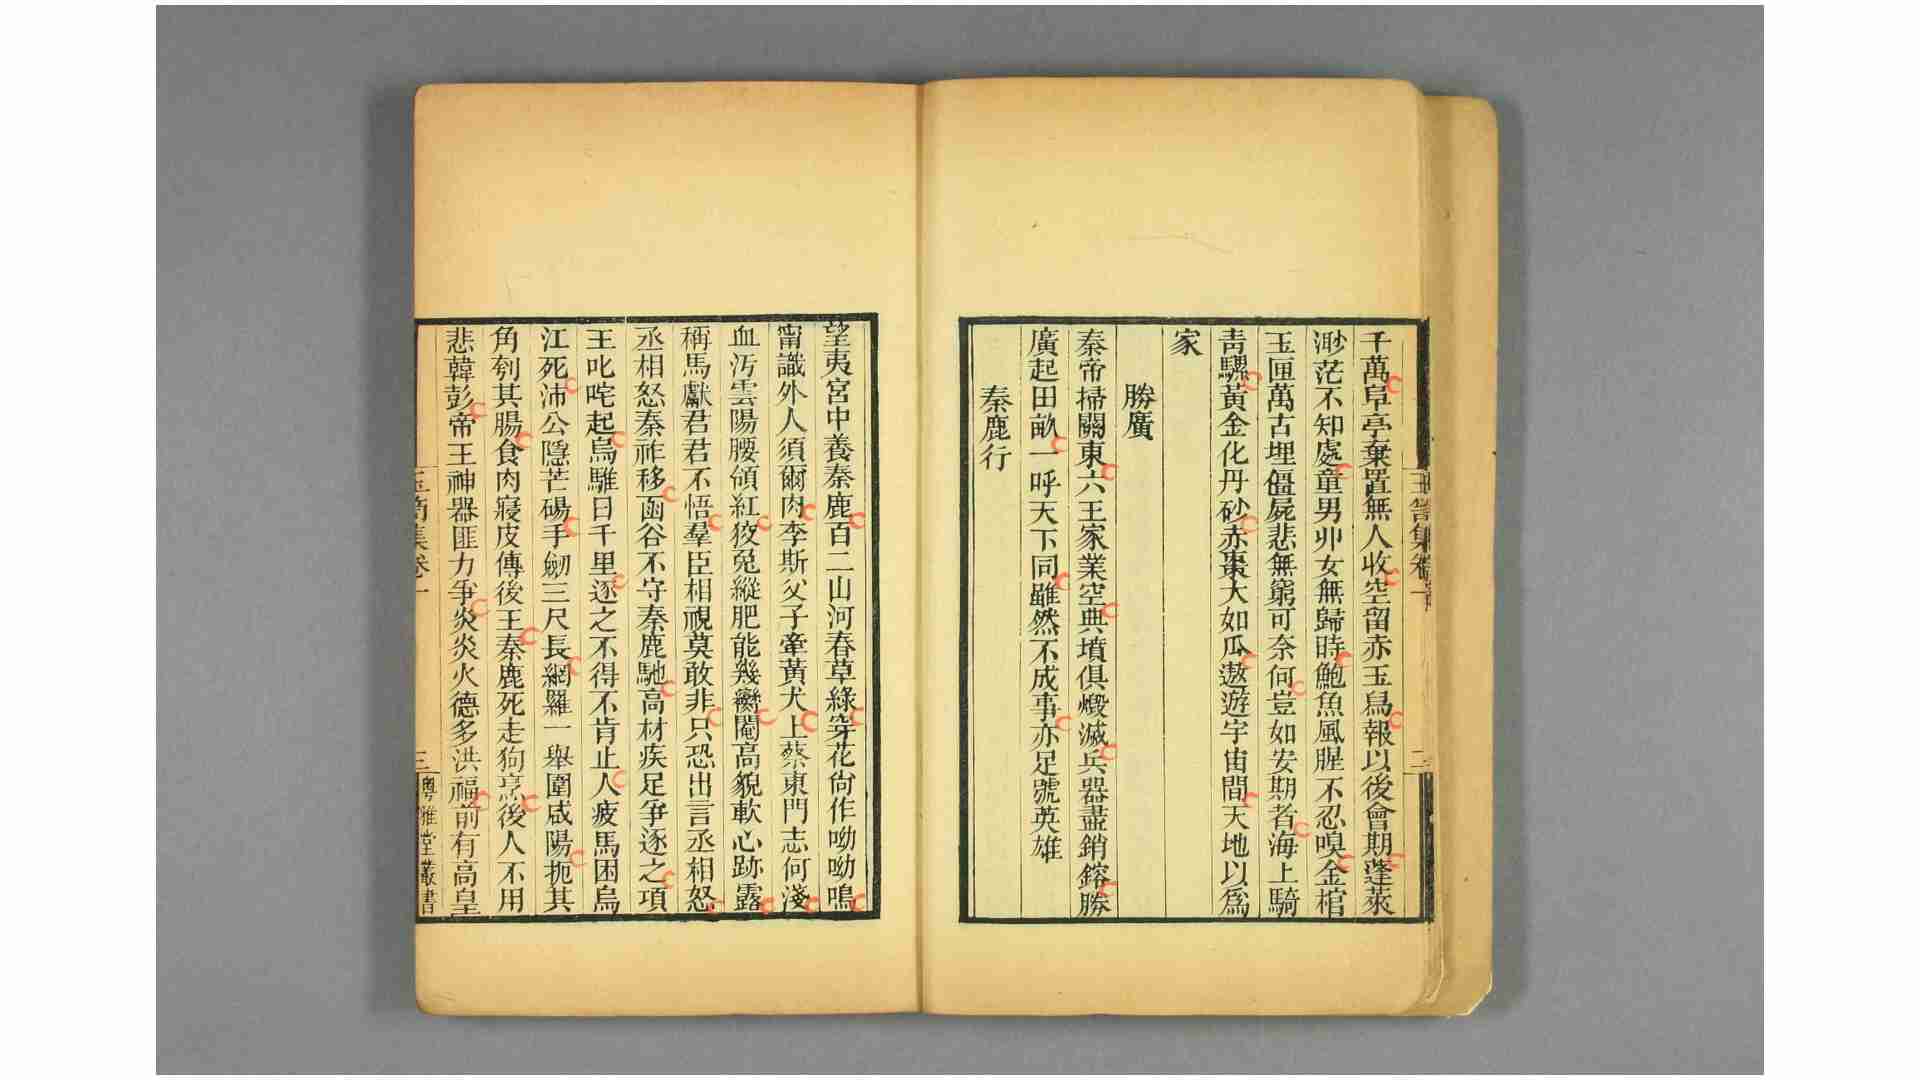 千萬阜亭棄置無人收空留赤玉舃報以後會期蓬萊
渺茫不知處童男丱女無歸時鮑魚風腥不忍嗅金棺
玉匣萬古埋僵屍悲無窮可奈何豈如安期者海上騎
青騾黃金化丹砂赤棗大如瓜遨遊宇宙間天地以爲
家
勝廣
秦帝掃關東六王家業空典墳俱燬滅兵器盡銷鎔勝
廣起田畝一呼天下同雖然不成事亦足號英雄
秦鹿行
玉笥集卷一
二
望夷宮中養秦鹿百二山河春草綠穿花尙作呦呦鳴
甯識外人須爾肉李斯父子牽黃犬上蔡東門志何淺
血汚雲陽腰領紅狡兔縱肥能幾臠閹高貌軟心跡露
稱馬獻君君不悟羣臣相視莫敢非只恐出言丞相怒
丞相怒秦祚移函谷不守秦鹿馳高材疾足爭逐之項
王叱咤起烏騅日千里逐之不得不肯止人疲馬困烏
江死沛公隱芒碭手劒三尺長網羅一舉圍咸陽扼其
角刳其腸食肉寢皮傳後王秦鹿死走狗烹後人不用
悲韓彭帝王神器匪力爭炎炎火德多洪福前有高皇
玉笥集卷一
三
粵雅堂叢書